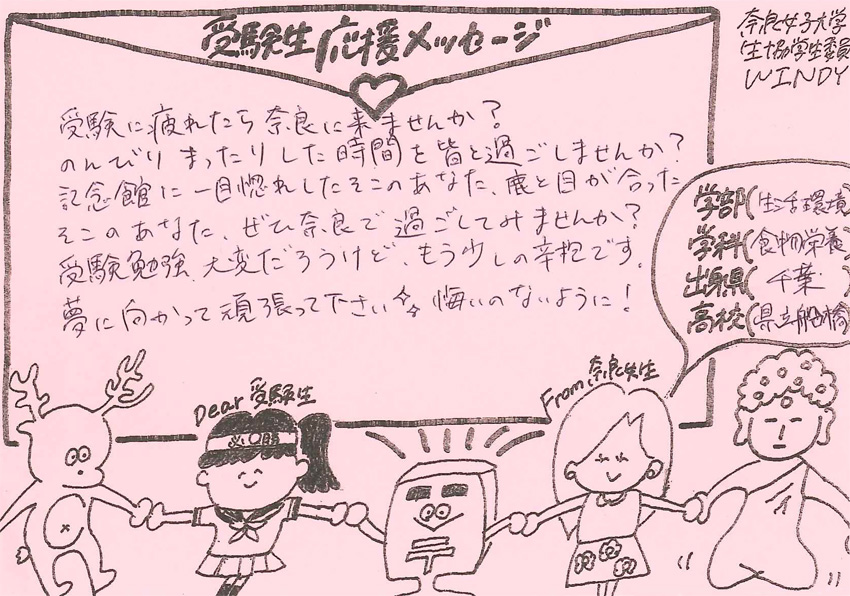 受験生応援メッセージ
奈良女子大学
生協学生委員
WINDY
受験に疲れたら奈良に来ませんか?
のんびりまったりした時間を皆と過ごしませんか?
記念館に一目惚れしたそこのあなた、鹿と目が合った
そこのあなた、ぜひ奈良で過ごしてみませんか?
受験勉強、大変だろうけど、もう少しの辛抱です。
夢に向かって頑張って下さい✧ 悔いのないように!
学部(生活環境)
学科(食物栄養)
出身県(千葉)
高校(県立船橋)
Dear 受験生
From 奈良女生
必勝
〒